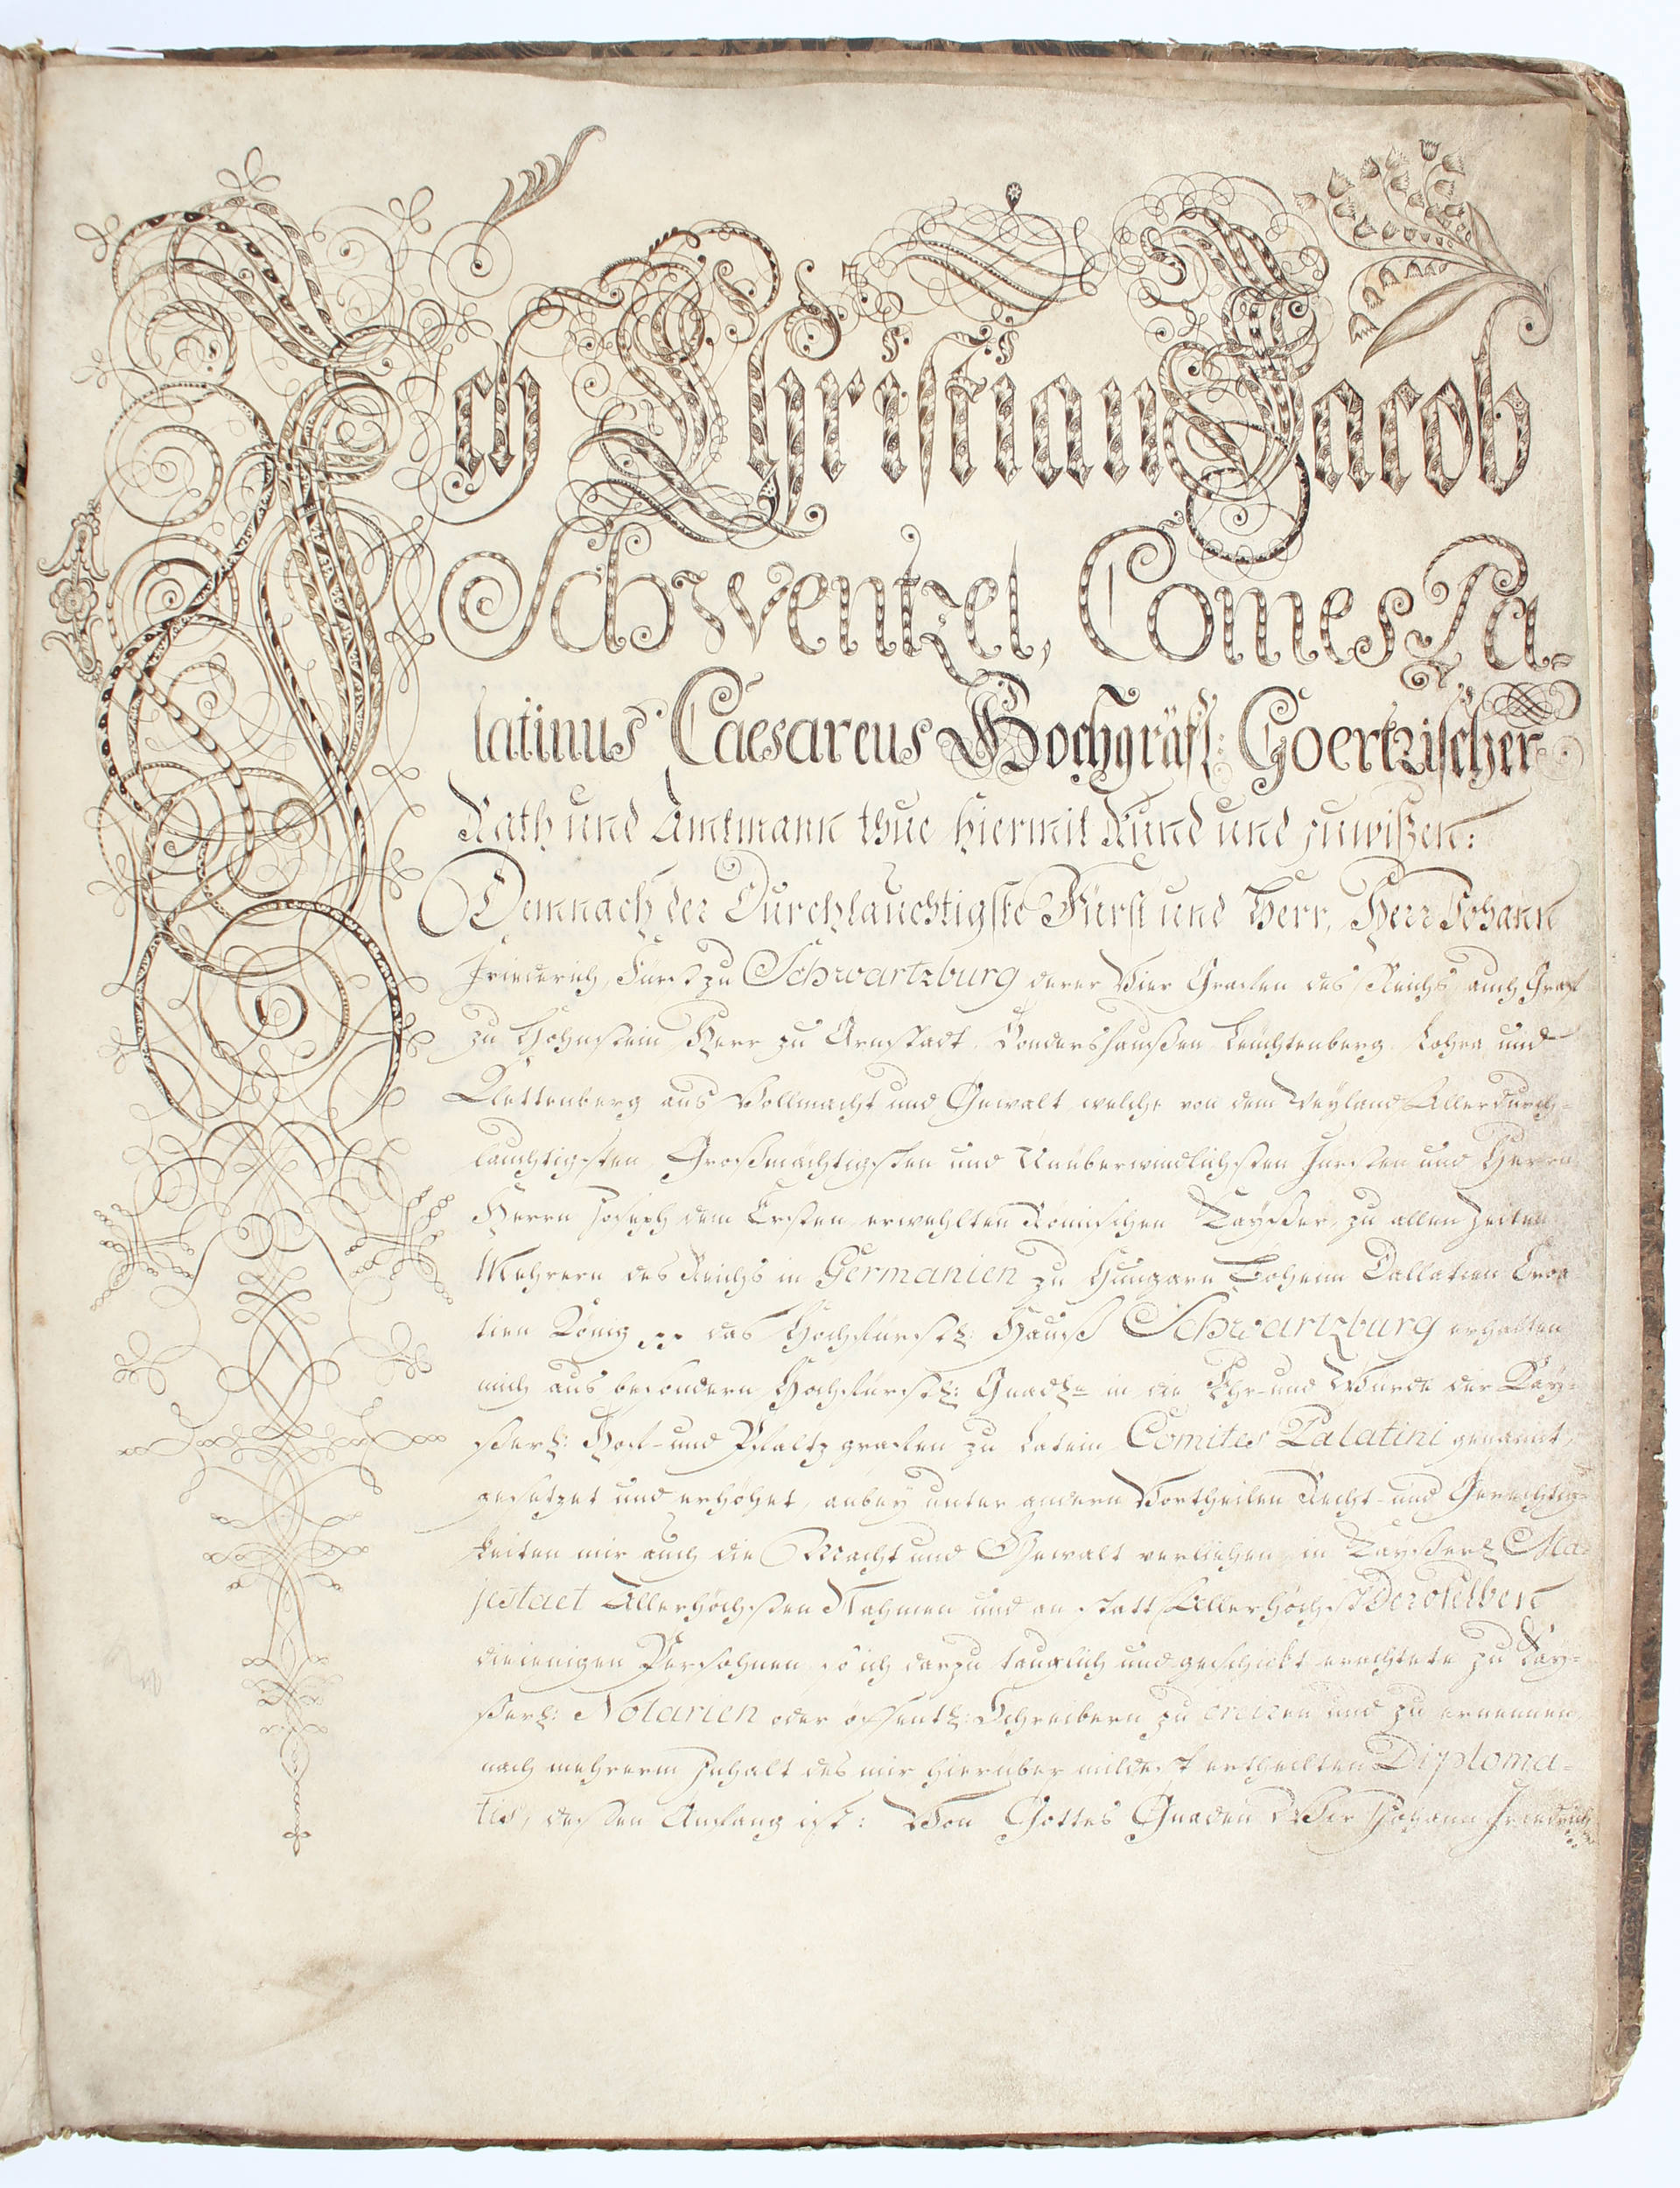 Ich Christian Jacob
Schwentzel, Comes Pa-
latinus Caesareus Hochgräfl: Goertzischer
Rath und Amtmann thue hiermit Kund und zuwißen:
Demnach der Durchlauchtigste Fürst und Herr, Herr Johann
Friederich, Fürst zu Schwartzburg derer Vier Grafen des Reichs, auch Graf
zu Hohnstein Herr zu Arnstadt, Sondershaußen Leuchtenberg, Lohra und
Klettenberg aus Vollmacht und Gewalt, welche von dem Weyland Allerdurch-
lauchtigsten, Großmächtigsten und Unüberwindlichsten Fürsten und Herrn
Herrn Joseph dem Ersten erwehlten Römischen Kayßer, zu allen Zeiten
Mehrern des Reichs in Germanien zu Hungarn Boheim Dallatien Croa
tien König das Hochfürstl: Hauß Schwartzburg erhalten
mich aus besondern Hochfürstl: Gnad in die Ehr- und Würde der Kay-
ßerl: Hof- und Pfaltz grafen zu Latein Comites Palatini genannt,
gesetzet und erhöhet, anbey unter andern Vortheilen Recht- und Gerechtig-
keiten mir auch die Macht und Gewalt verliehen, in Kayßerl Ma-
jestaet Allerhöchsten Nahmen und an statt Allerhöchst Deroselben
diejenigen Persohnen so ich darzu tauglich und geschickt erachtete zu Kay-
ßerl: Notarien oder öffentl: Schreibern zu creiren und zu ernennen,
nach mehrerm Inhalt des mir hierüber mildest ertheilten Diploma-
tis, deßen Anfang ist: Von Gottes Gnaden Wir Johann Friedrich